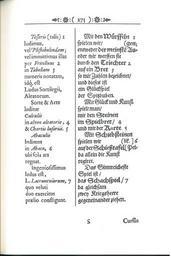 ( 271 )
Tesseris (talis) 1
ludimus,
vel Plistobolindam;
vel immittimus illas
per Fritillum 2
in Tabulam 3
numeris notatam,
idq; est
Ludus Sortilegii,
Aleatorum.
Sorte & Arte
luditur
Calculis
in alveo aleatorio, 4
& Chartis lusoriis. 5
Abaculis
ludimus
in Abaco, 6
ubi sola ars
regnat.
Ingeniosissimus
ludus est,
L. Latrunculorum, 7
quo veluti
duo exercitus
prælio confligunt.
Mit den Würfflen 1
spielen wir/
entweder der meinste Au-
oder wir werffen sie (gen;
durch den Trichter 2
auf ein Bret 3
so mit Zahlen bezeichnet/
und dieses ist
ein Glücksspiel
der Spitzbuben.
Mit Glück und Kunst
spielet man/
mit den Steinen
im Spielbret/ 4
und mit der Karte. 5
Mit Schießsteinen
spielen wir
auf der Schießtaffel/ 6
da allein die Kunst
regiret.
Das Sinnreichste
Spiel ist/
das Schachspiel/ 7
da gleichsam
zwey Kriegsheere
gegeneinander ziehen.
S
Cursus